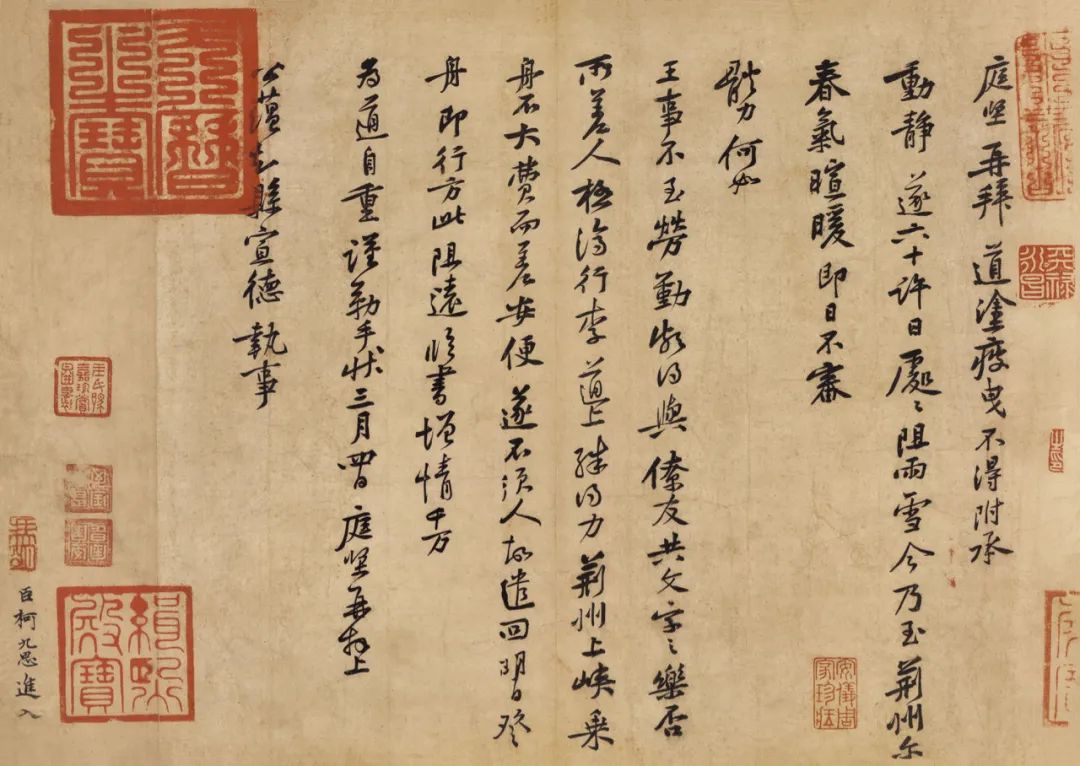 庭堅再拜 道塗疲曳不得附承
動靜 遂六十許日處々阻雨雪今乃至荊州尔
春氣暄暖即日不審
體力何如
王事不至勞勤頗得與僚友共文字之樂否
所差人極濟行李道上殊得力荊州上峽乘
舟不大費而差安便遂不須人故遣回明日登
舟即行方此阻遠臨書增情千万
為道自重謹勒手狀三月四日 庭堅再拜上
公蘊知縣宣德執事
臣柯九思進入
緝熙殿寶
安儀周家珍藏